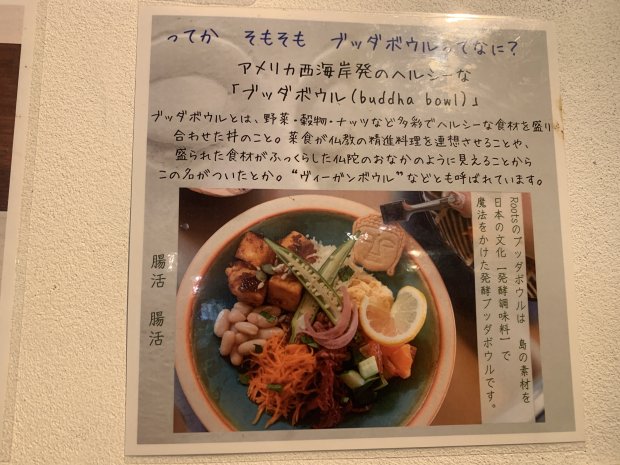 ってか そもそも ブッダボウルってなに?
アメリカ西海岸発のヘルシーな
「ブッダボウル(buddha bowl)」
ブッダボウルとは、野菜・穀物・ナッツなど多彩でヘルシーな食材を盛り
合わせた丼のこと。菜食が仏教の精進料理を連想させることや、
盛られた食材がふっくらした仏陀のおなかのように見えることから
この名がついたとか。“ヴィーガンボウル”などとも呼ばれています。
Rootsのブッダボウルは 島の素材を
日本の文化【発酵調味料】で
魔法をかけた発酵ブッダボウルです。
腸活 腸活